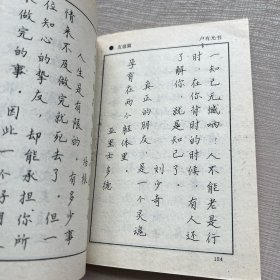 ●友谊篇
卢有光书
一知己无憾啊。人不能老是行
时,在你背时的时候,有人还
了解你,就是知己了。
刘少奇
真正的朋友,是一个灵魂
孕育在两个躯体里。
亚里士多德
培根
人生是有限的,有多少事
情来不及做完就死去了。但一
位知心的挚友,却能承担你所
未做完的事。因此一个好朋